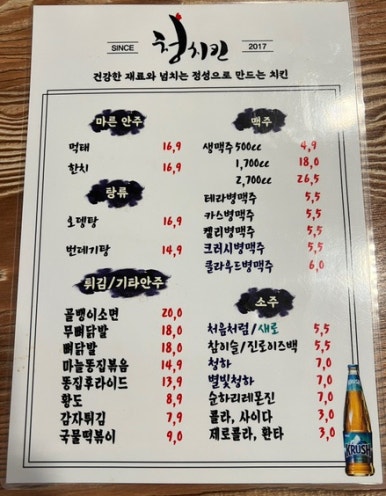 SINCE 청치킨 2017
건강한 재료와 넘치는 정성으로 만드는 치킨
마른 안주
먹태 16,9
한치 16,9
탕류
오뎅탕 16,9
번데기탕 14,9
튀김/기타안주
골뱅이소면 20,0
무뼈닭발 18,0
뼈닭발 18,0
마늘똥집볶음 14,9
똥집후라이드 13,9
황도 8,9
감자튀김 7,9
국물떡볶이 9,0
맥주
생맥주 500cc 4,9
1,700cc 18,0
2,700cc 26,5
테라병맥주 5,5
카스병맥주 5,5
켈리병맥주 5,5
크러시병맥주 5,5
클라우드병맥주 6,0
소주
처음처럼/새로 5,5
참이슬/진로이즈백 5,5
청하 7,0
별빛청하 7,0
순하리레몬진 7,0
콜라, 사이다 3,0
제로콜라, 환타 3,0
KRUSH